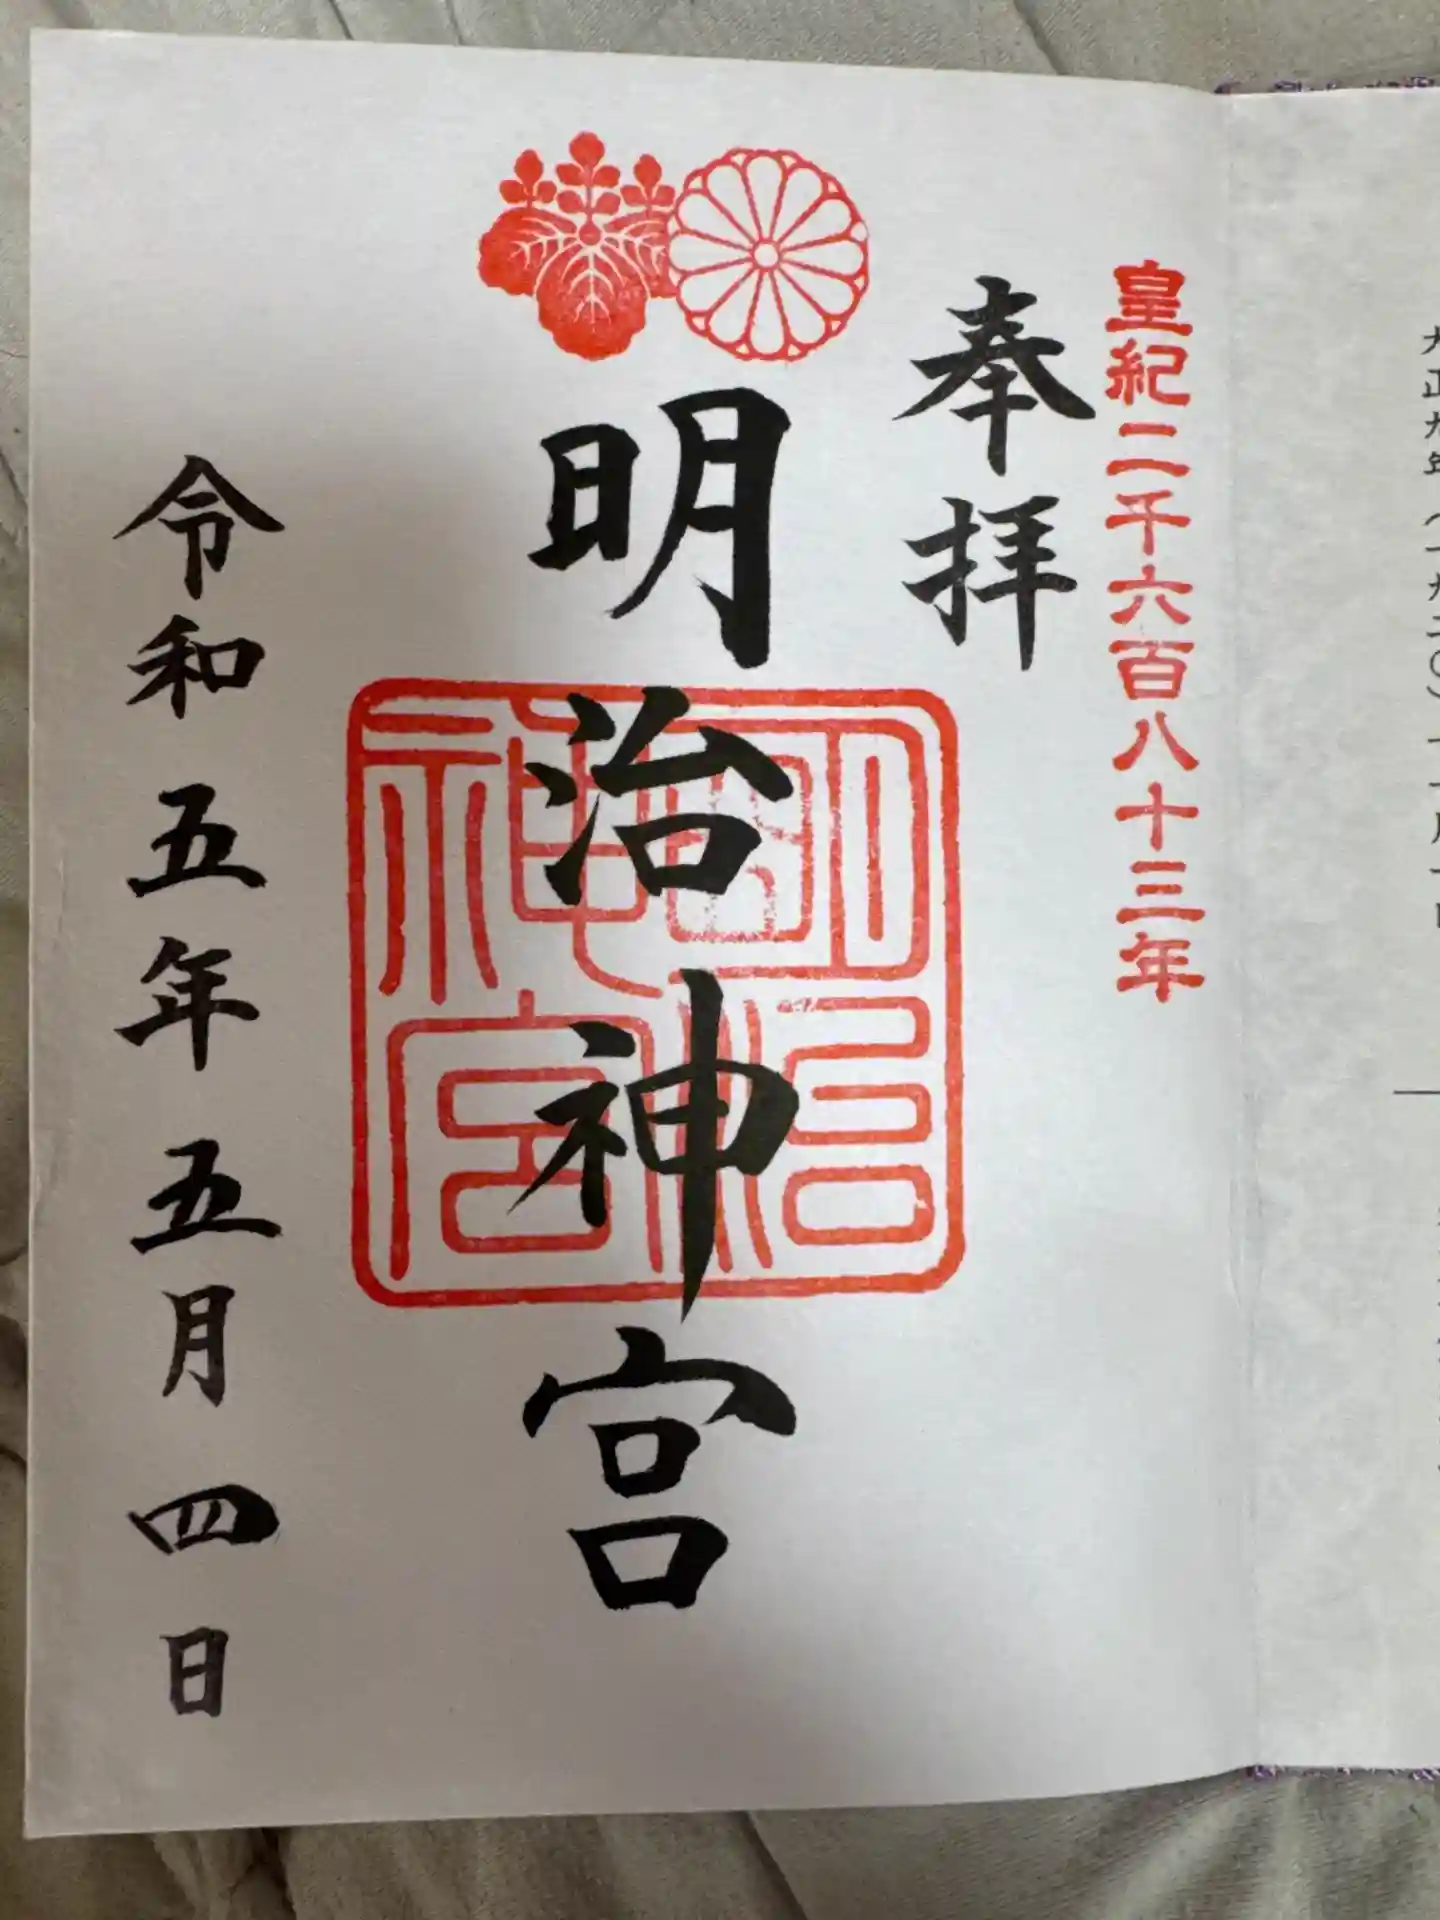 大正九年(一九二〇)十一月一日
皇紀二千六百八十三年
奉拝
明治神宮
明治神宮
令和五年五月四日